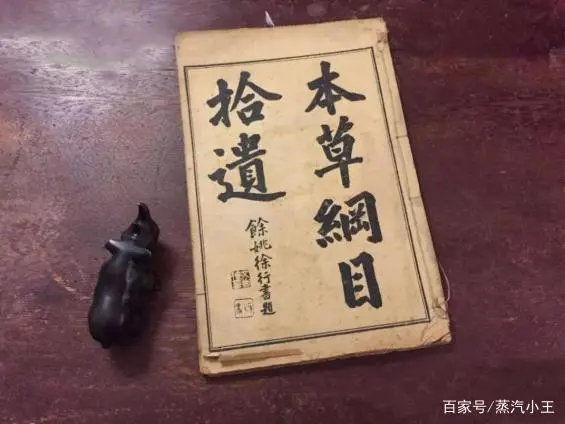 本草綱目
拾遺
餘姚徐行書題
百家号/蒸汽小王